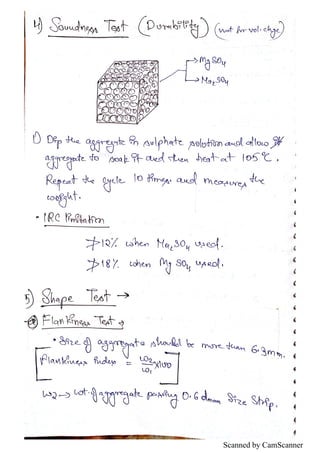 4) Soundness Test (Durability) (wrt for vol. chge)
→ Mg SO4
→ Na2 SO4
1) Dip the aggregate in sulphate solution and allow
aggregate to soak it and then heat at 105°C.
Repeat the cycle 10 times and measures the
weight.
• IRC limitation
≯ 12% when Na2 SO4 used.
≯ 18% when Mg SO4 used.
5) Shape Test →
Flankiness Test →
• Size of aggregate should be more than 6.3mm.
Flankiness index = w2/w1 × 100
w2 → wt. of aggregate passing 0.6 dmean Size Strip.
Scanned by CamScanner